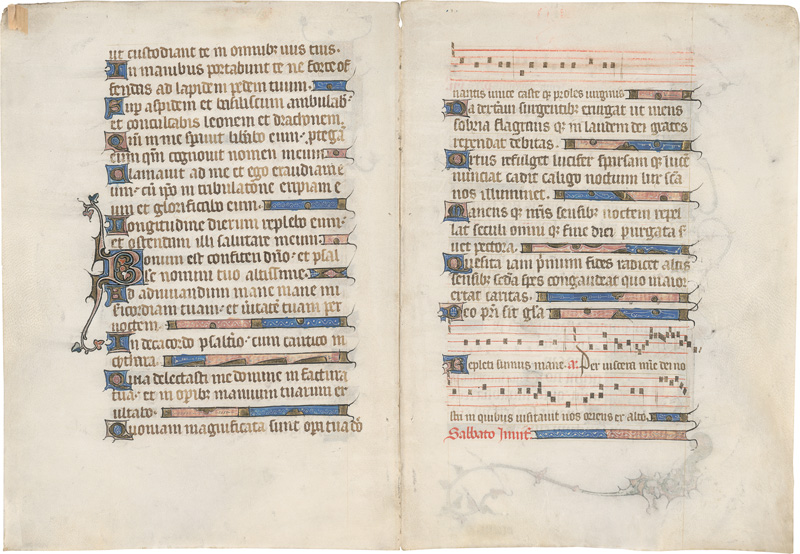 ut custodiant te in omnibȝ uiis tuis.
In manibus portabunt te ne forte of
fendas ad lapidem pedem tuum.
Sup aspidem et basiliscum ambulab
et conculcabis leonem et draconem.
Qm in me sperauit libabo eum. protegā
eum qm cognouit nomen meum.
Clamauit ad me et ego exaudiam e
um. cū ipo in tribulatone eripiam e
um et glorificabo eum.
Longitudine dierum replebo eum.
et ostendam illi salutare meum.
Bonum est confiteri dno. et psal
lere nomini tuo altissime.
Ad adnuntiandum mane mam
sicordiam tuam. et uitatē tuam per
noctem.
In decacordo psaltio. cum cantico in
cythara.
Quia delectasti me domine in factura
tua. et in opibȝ manuum tuarum ex
ultabo.
Quoniam magnificata sunt opa tua dō
nantis unice caste qȝ proles uirginis
Da dextam surgentibȝ exurgat ut mens
sobria flagrans qȝ in laudem dei grates
rependat debitas.
Ortus refulget lucifer spsam qȝ lucē
nunciat cadit caligo noctium lux scā
nos illuminet.
Manens qȝ nris sensibȝ noctem repel
lat seculi omni qȝ fine diei purgata s
uet pectora.
Quesita iam pimum fides radicet altis
sensibȝ scda spes congaudeat quo maior
extat caritas.
Deo pri sit gla
Repleti sumus mane. a. Per uiscera mie dei no
stri in quibus uisitauit nos oriens ex alto.
Sabbato Inuit